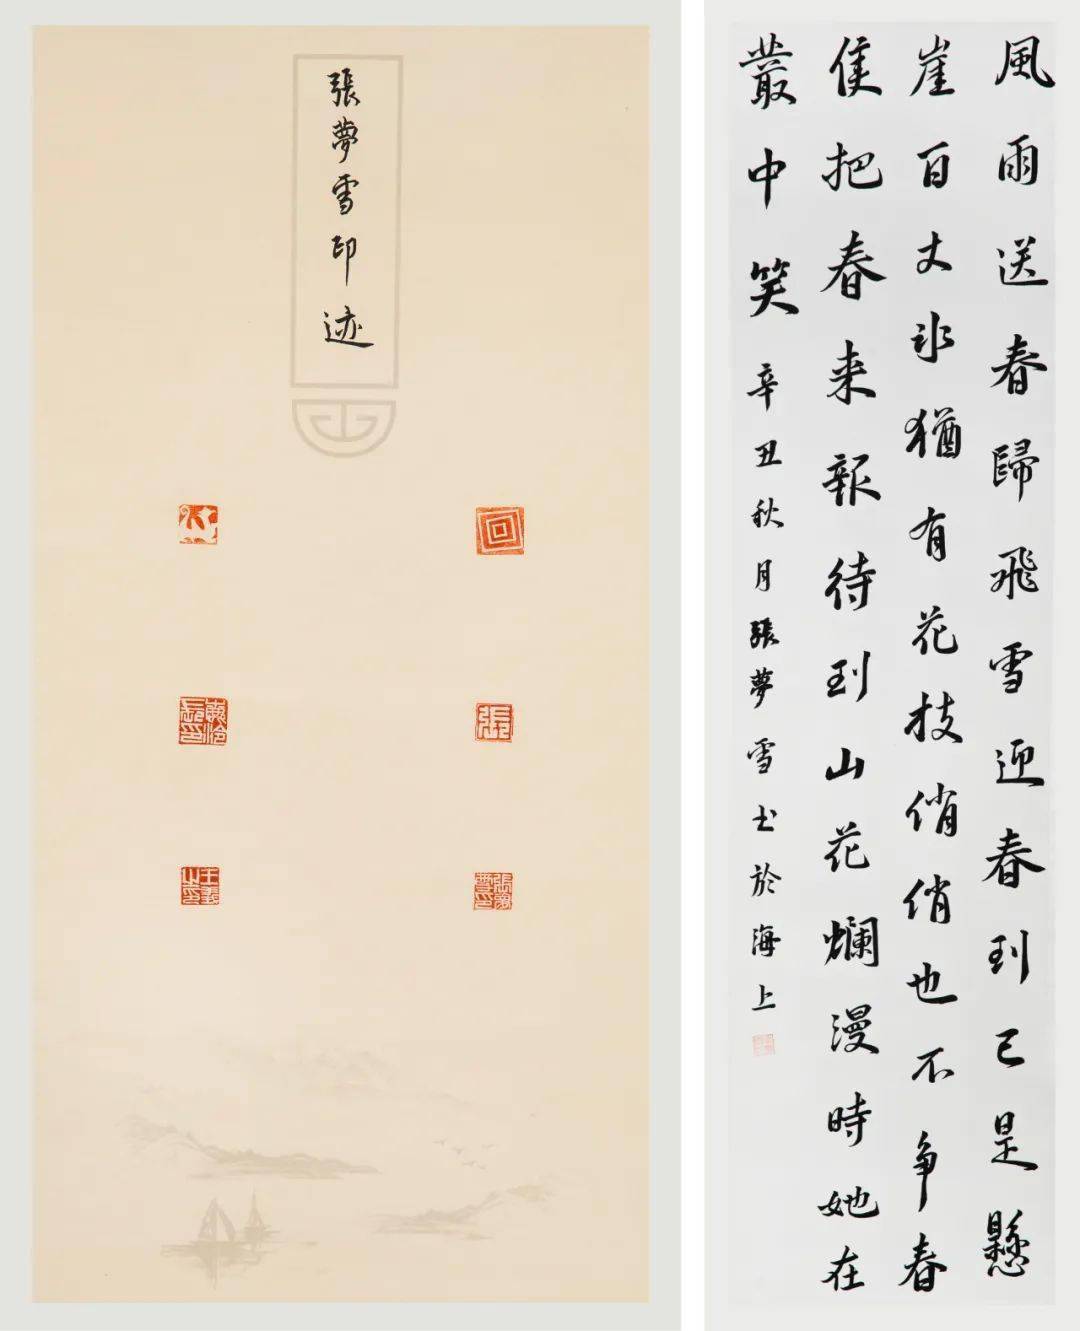 張夢雪印迹
張
王羲之印
張夢雪印
風雨送春歸飛雪迎春到已是懸
崖百丈冰猶有花枝俏俏也不争春
隻把春来報待到山花爛漫時她在
叢中笑 辛丑秋月張夢雪书於海上